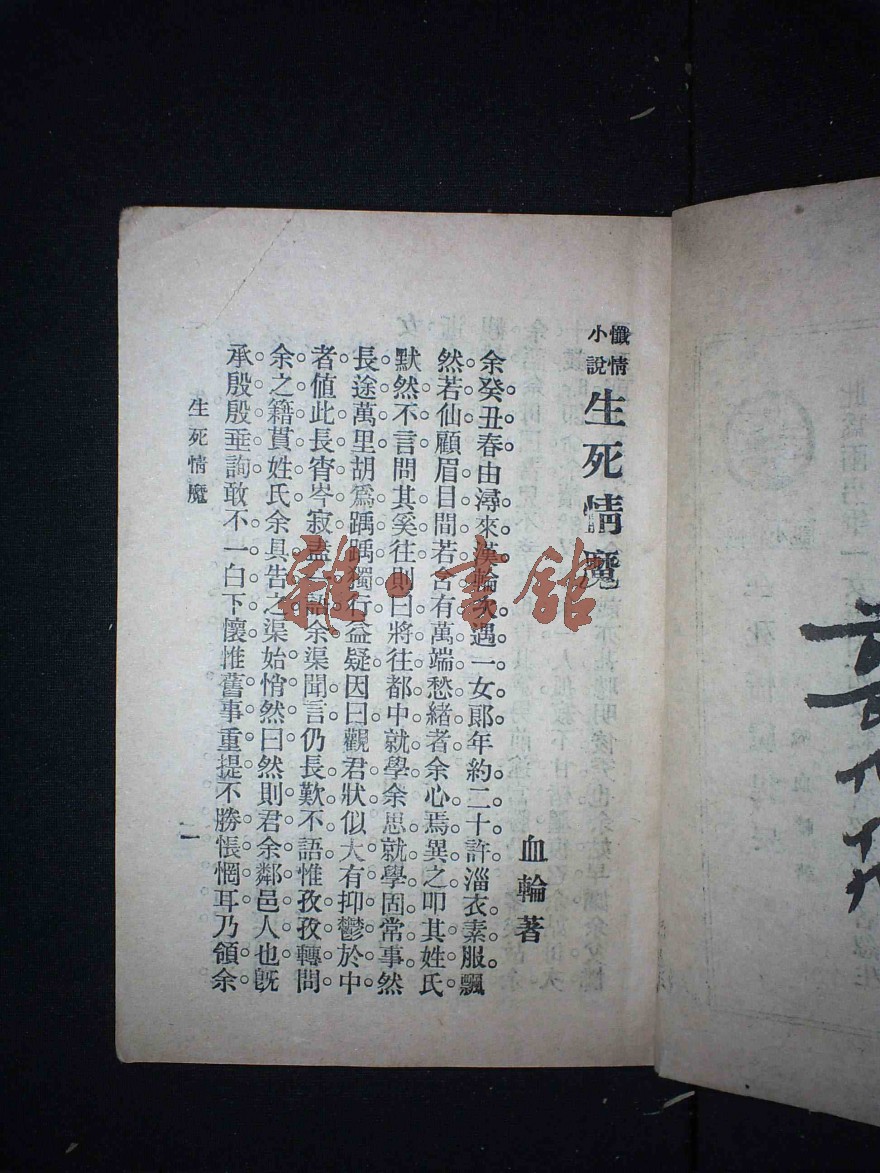 懺情
小說
生死情魔
血輪著
余癸丑春由潯來漢輪次遇一女郎年約二十許淄衣素服飄
然若仙顧眉目間若含有萬端愁緒者余心焉異之叩其姓氏
默然不言問其奚往則曰將往都中就學余思就學固常事然
長途萬里胡爲踽踽獨行益疑因曰觀君狀似大有抑鬱於中
者值此長宵岑寂盍一語余渠聞言仍長歎不語惟孜孜轉問
余之籍貫姓氏余具告之渠始悄然曰然則君余鄰邑人也旣
承殷殷垂詢敢不一白下懷惟舊事重提不勝悵惘耳乃領余
生死情魔
一
雜·書館